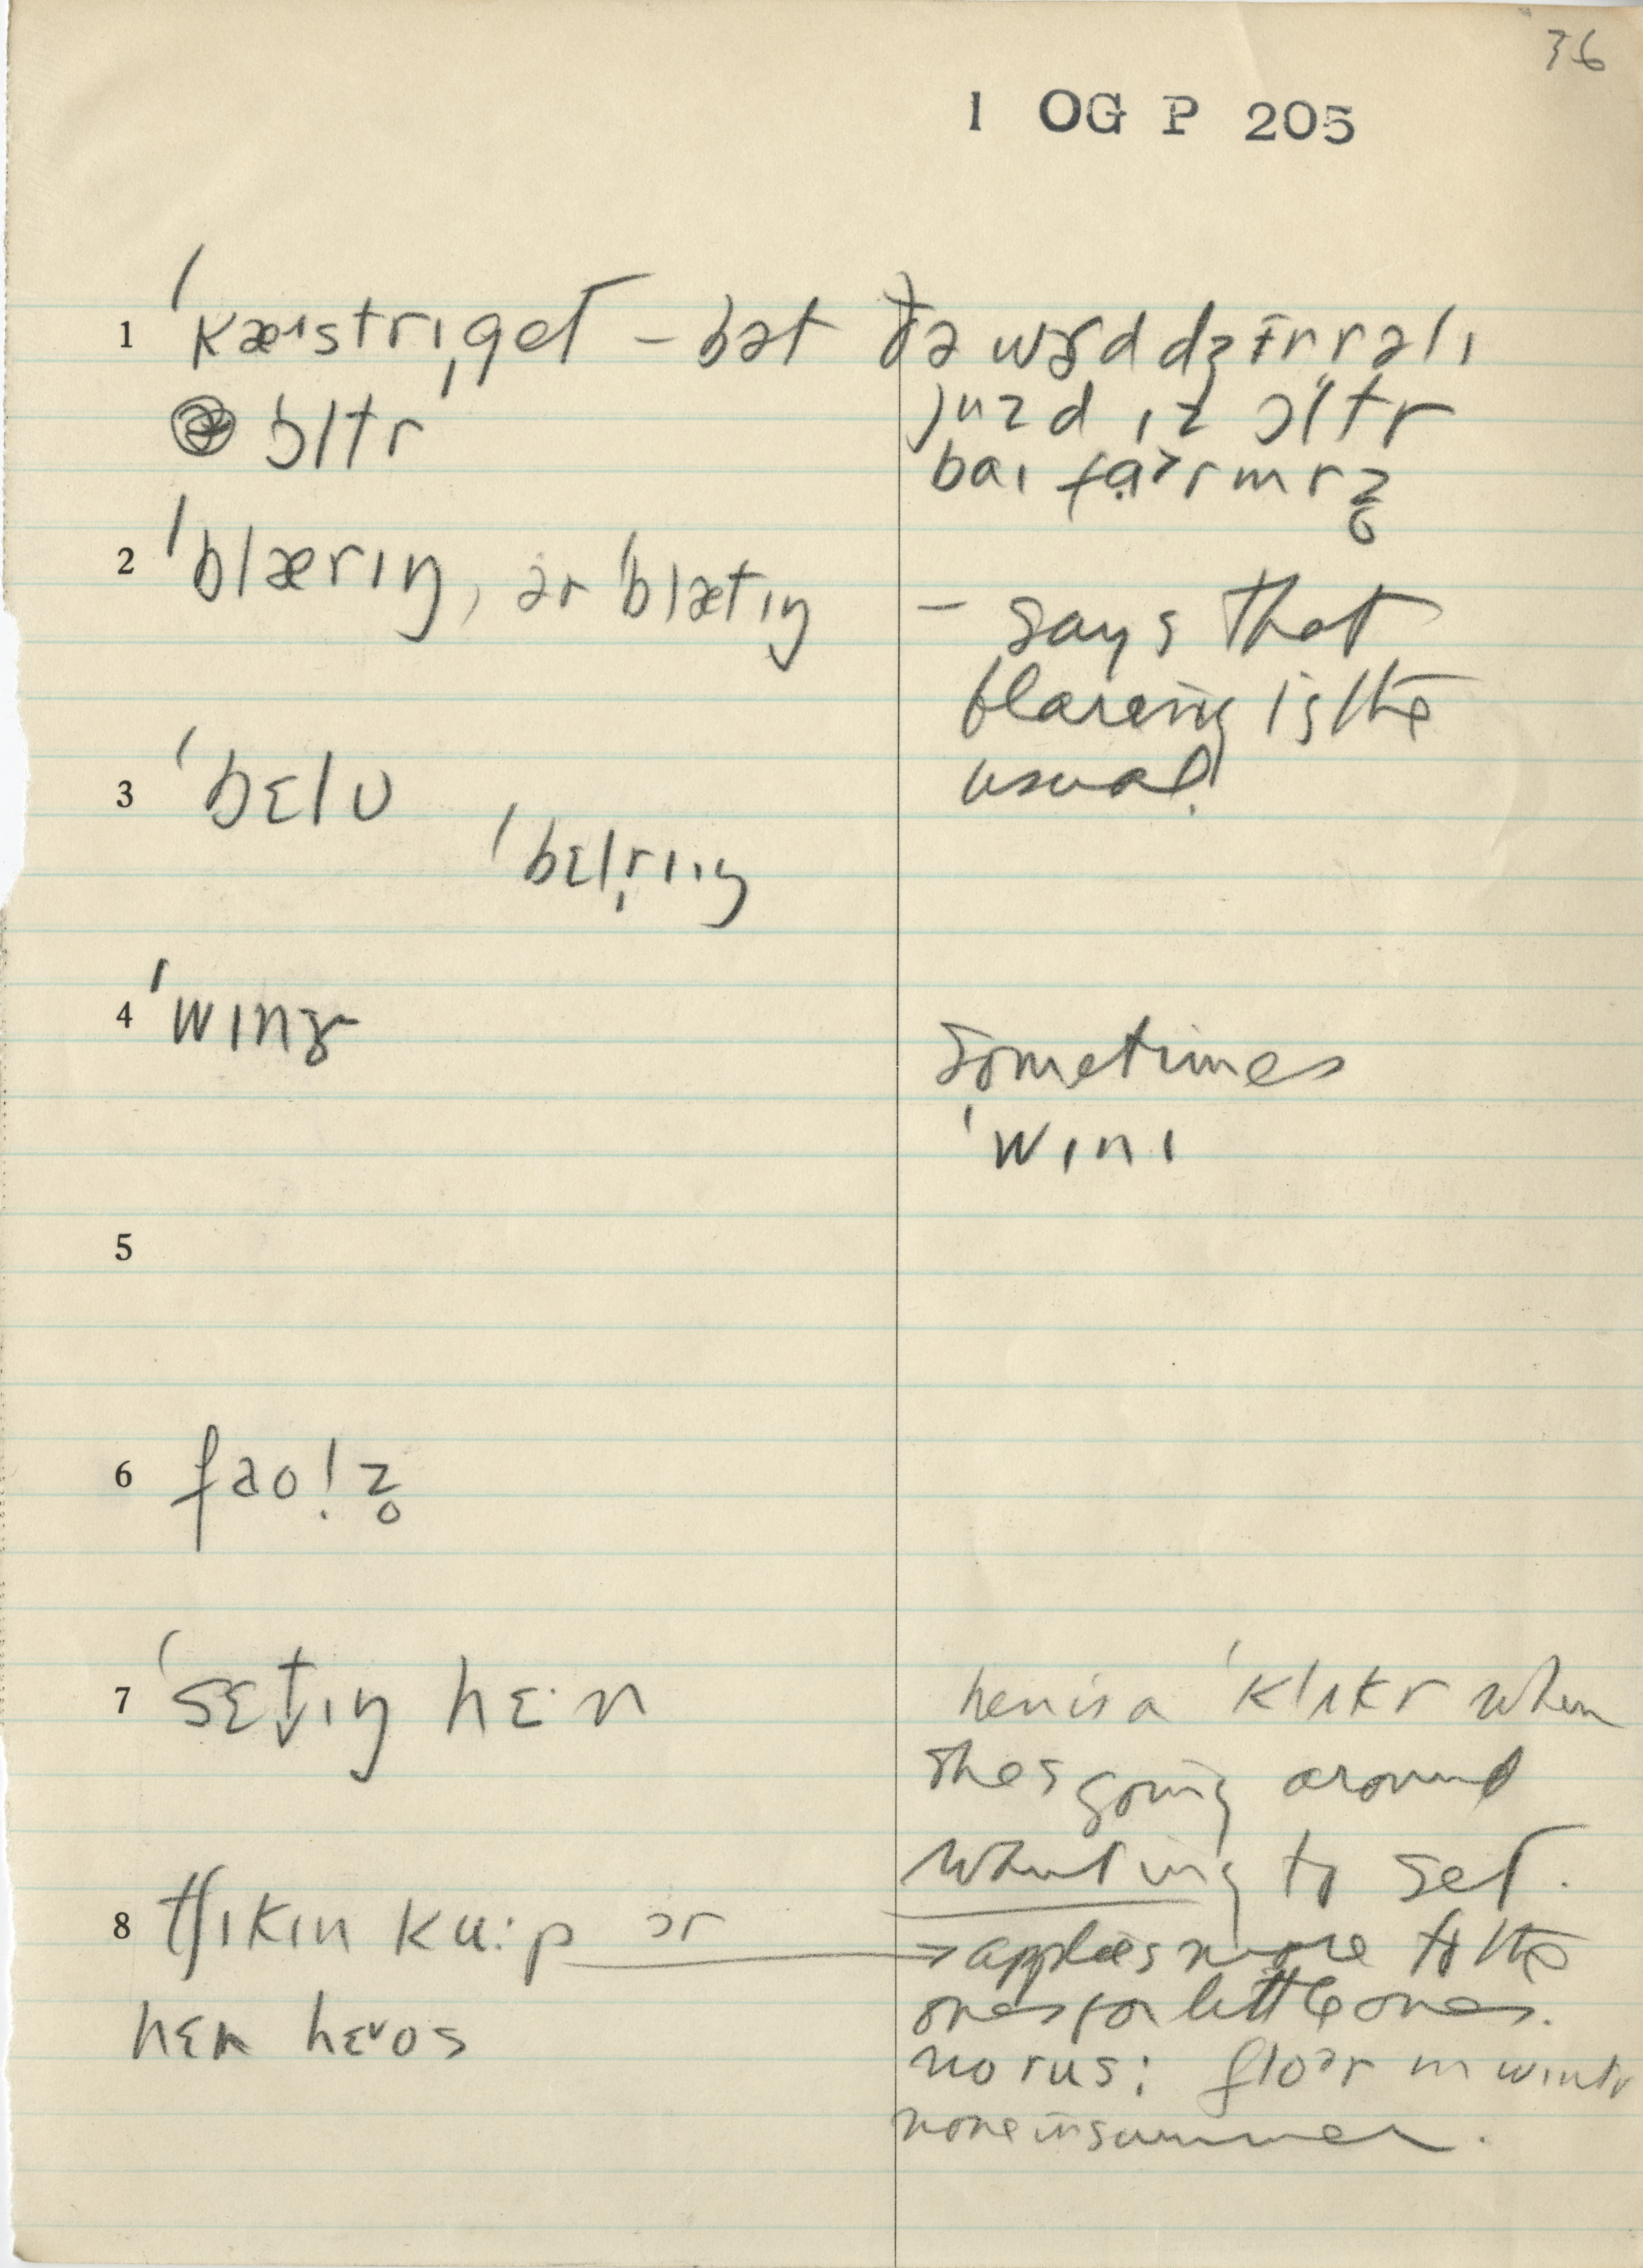 36
1 OG P 205
1 ˈkæɪstrɪˌget – bət ðə wɝd dʒɪnrəlɪ
ɔltr juzd ɪz ɔltr
baɪ fɑərmrz̥
2 ˈblærɪŋ, ər ˈblætɪŋ – says that
blareing is the
usual.
3 ˈbɛlʊ
ˈbɛlr̩ɪŋ
4 ˈwɪnɝ
sometimes
ˈwɪnɪ
5
6 faol̩z̥
7 ˈsɛt̬ɪŋ hɛ·n hen is a ˈklʌkr when
she's going around
wanting to set.
8 tʃɪkɪn ku:p ər → applies more to the
ones for little ones.
hɛn hɛʊos no rus: floər in wintr
none in summer.